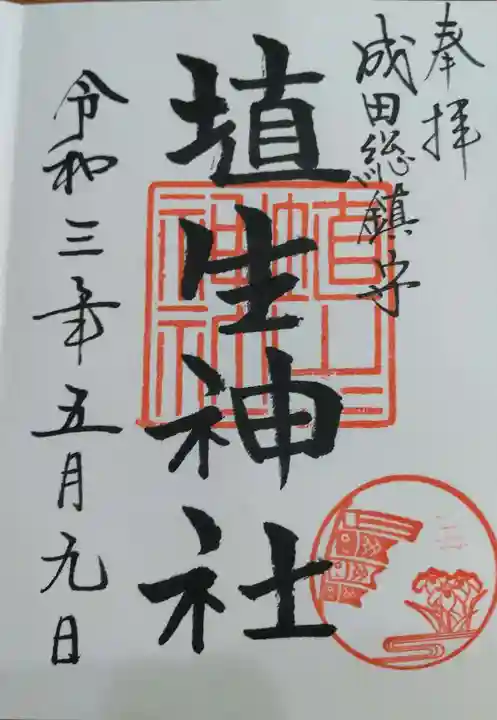 奉拝
成田総鎮守
埴生神社
令和三年五月九日
埴生神社